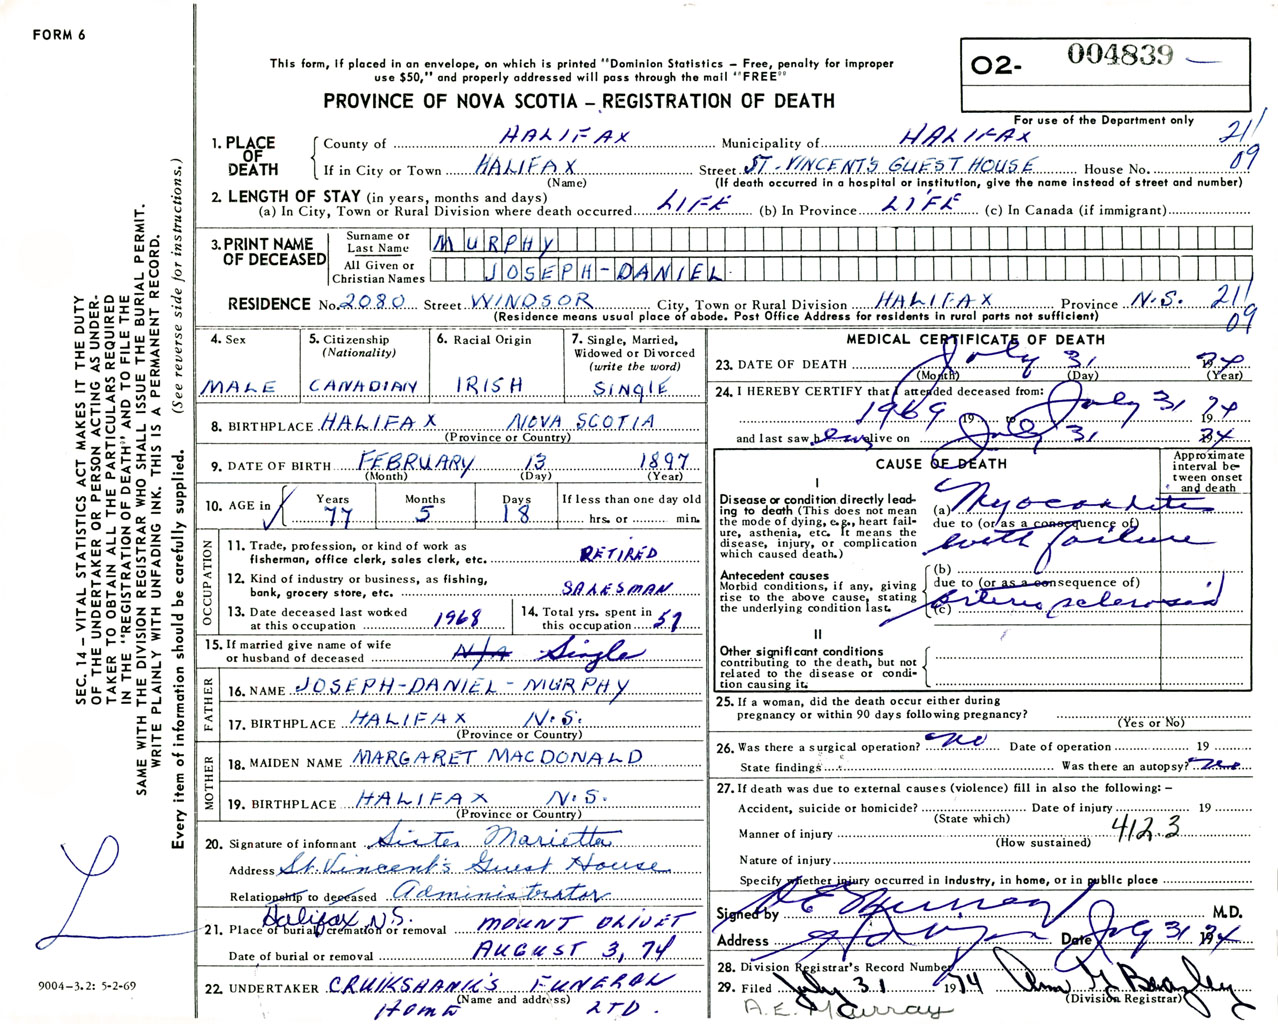 FORM 6
This form, if placed in an envelope, on which is printed "Dominion Statistics – Free, penalty for improper
use $50," and properly addressed will pass through the mail "FREE"
PROVINCE OF NOVA SCOTIA – REGISTRATION OF DEATH
O2- 004839
For use of the Department only
1. PLACE OF DEATH County of HALIFAX Municipality of HALIFAX 21/
If in City or Town HALIFAX Street ST. VINCENT'S GUEST HOUSE House No. 09
(Name) (If death occurred in a hospital or institution, give the name instead of street and number)
2. LENGTH OF STAY (in years, months and days)
(a) In City, Town or Rural Division where death occurred LIFE (b) In Province LIFE (c) In Canada (if immigrant)
3. PRINT NAME OF DECEASED Surname or Last Name MURPHY
All Given or Christian Names JOSEPH-DANIEL
RESIDENCE No. 2080 Street WINDSOR City, Town or Rural Division HALIFAX Province N.S. 21/
(Residence means usual place of abode. Post Office Address for residents in rural parts not sufficient) 09
SEC. 14 – VITAL STATISTICS ACT MAKES IT THE DUTY
OF THE UNDERTAKER OR PERSON ACTING AS UNDER-
TAKER TO OBTAIN ALL THE PARTICULARS REQUIRED
IN THE "REGISTRATION OF DEATH" AND TO FILE THE
SAME WITH THE DIVISION REGISTRAR WHO SHALL ISSUE THE BURIAL PERMIT.
WRITE PLAINLY WITH UNFADING INK. THIS IS A PERMANENT RECORD.
Every item of information should be carefully supplied. (See reverse side for instructions.)
4. Sex MALE
5. Citizenship (Nationality) CANADIAN
6. Racial Origin IRISH
7. Single, Married, Widowed or Divorced (write the word) SINGLE
8. BIRTHPLACE HALIFAX NOVA SCOTIA
(Province or Country)
9. DATE OF BIRTH FEBRUARY 13 1897
(Month) (Day) (Year)
10. AGE in Years 77 Months 5 Days 18 If less than one day old
hrs. or min.
OCCUPATION
11. Trade, profession, or kind of work as
fisherman, office clerk, sales clerk, etc. RETIRED
12. Kind of industry or business, as fishing,
bank, grocery store, etc. SALESMAN
13. Date deceased last worked
at this occupation 1968
14. Total yrs. spent in
this occupation 57
15. If married give name of wife
or husband of deceased N/A Single
FATHER
16. NAME JOSEPH-DANIEL-MURPHY
17. BIRTHPLACE HALIFAX N.S.
(Province or Country)
MOTHER
18. MAIDEN NAME MARGARET MACDONALD
19. BIRTHPLACE HALIFAX N.S.
(Province or Country)
20. Signature of informant Sister Marietta
Address St. Vincent's Guest House
Relationship to deceased Administrator
Halifax, N.S.
21. Place of burial, cremation or removal MOUNT OLIVET
Date of burial or removal AUGUST 3, 74
22. UNDERTAKER CRUIKSHANK'S FUNERAL
(Name and address)
HOME LTD.
9004-3.2: 5-2-69
MEDICAL CERTIFICATE OF DEATH
23. DATE OF DEATH July 31 1974
(Month) (Day) (Year)
24. I HEREBY CERTIFY that I attended deceased from:
1969 19 to July 31 19 74
and last saw him alive on July 31 1974
CAUSE OF DEATH
Approximate interval between onset and death
I
Disease or condition directly lead-
ing to death (This does not mean
the mode of dying, e.g., heart fail-
ure, asthenia, etc. It means the
disease, injury, or complication
which caused death.)
(a) Myocarditis
due to (or as a consequence of)
with failure
Antecedent causes
Morbid conditions, if any, giving
rise to the above cause, stating
the underlying condition last.
(b)
due to (or as a consequence of)
(c) Arteriosclerosis
II
Other significant conditions
contributing to the death, but not
related to the disease or condi-
tion causing it.
25. If a woman, did the death occur either during
pregnancy or within 90 days following pregnancy?
(Yes or No)
26. Was there a surgical operation? no Date of operation 19
State findings Was there an autopsy? no
27. If death was due to external causes (violence) fill in also the following: –
Accident, suicide or homicide? Date of injury 19
(State which)
Manner of injury 412.3
(How sustained)
Nature of injury
Specify whether injury occurred in industry, in home, or in public place
Signed by A E Murray M.D.
Address Halifax Date July 31 1974
28. Division Registrar's Record Number
29. Filed July 31 1974
(Division Registrar)
A.E. Murray